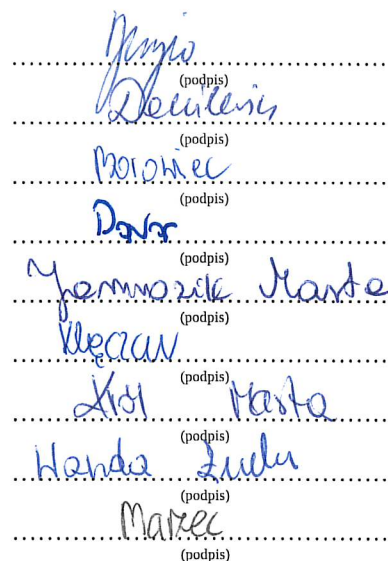 (podpis)
(podpis)
Borowiec
(podpis)
(podpis)
Jamrozik Marta
(podpis)
Klęczar
(podpis)
Król Marta
(podpis)
Wanda
(podpis)
Marzec
(podpis)